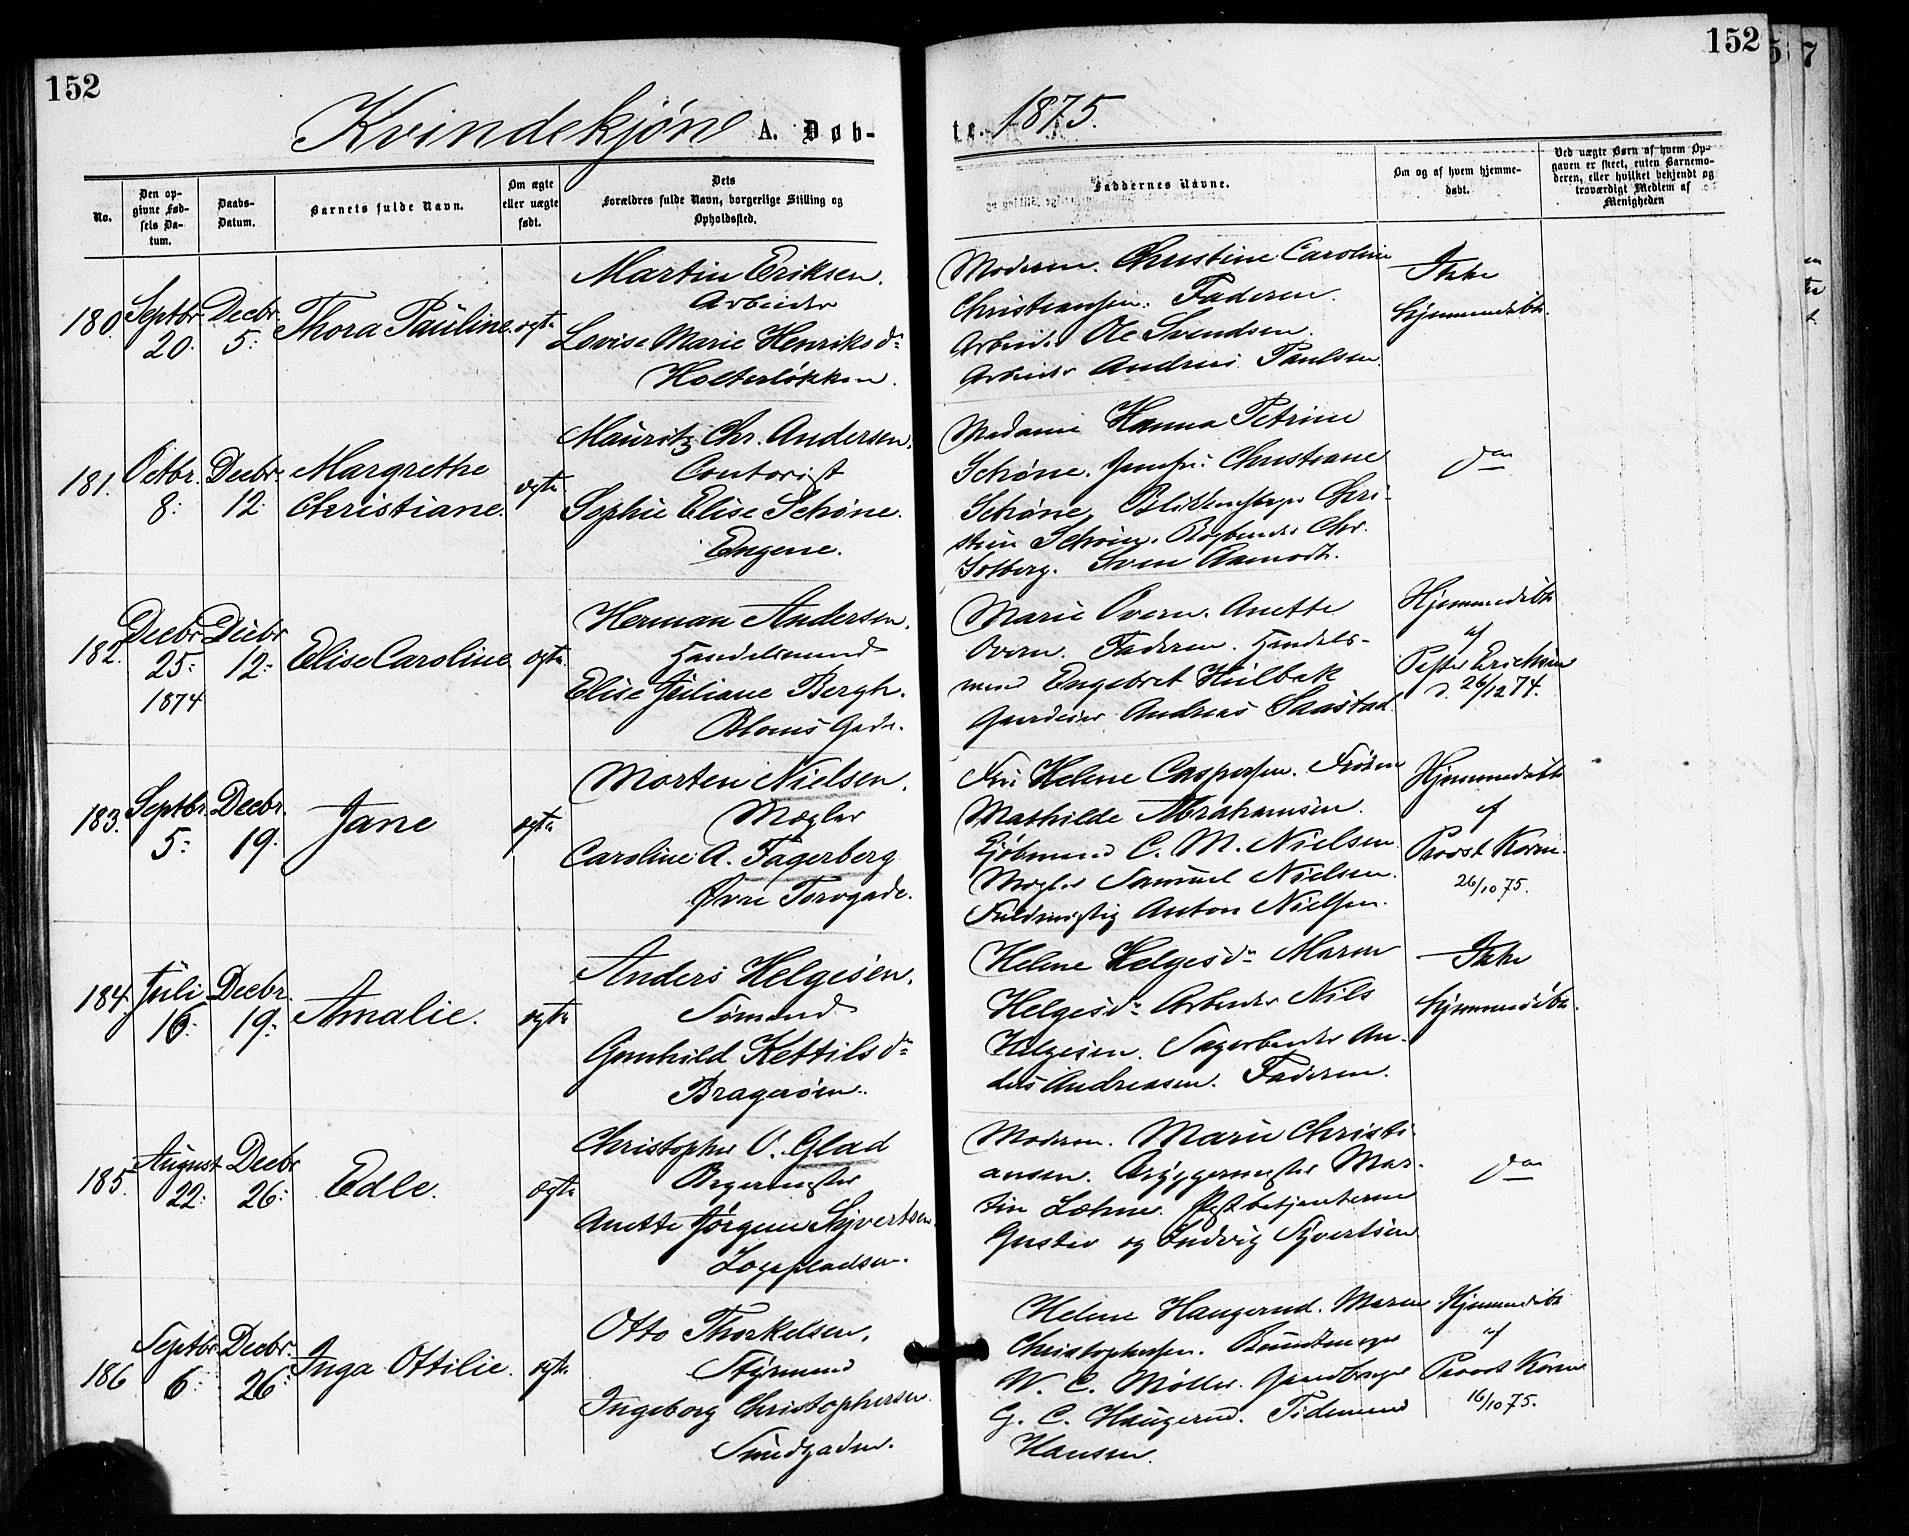 152
152
Kvindekjøn A. Døb-
te. 1875.
No.
Den op-
givne Fød-
sels Da-
tum.
Daabs-
Datum.
Barnets fulde Navn.
Om ægte
eller uægte
født.
Dets
Forældres fulde Navn, borgerlige Stilling og
Opholdssted.
Faddernes Navne.
Om og af hvem hjemme-
døbt.
Ved uægte Børn af hvem Op-
gaven er skeet, enten Barnemo-
deren, eller hvilket bekjendt og
troværdigt Medlem af
Menigheden
180.
Septbr.
20.
Decbr.
5.
Thora Pauline.
ægte
Martin Eriksen.
Arbeider
Lovise Marie Henriksdr
Holterløkken.
Moderen. Christine Caroline
Christiansen. Faderen.
Arbeider Ole Svendsen.
Arbeider Andreas Paulsen.
Ikke
hjemmedøbt.
181.
Octbr.
8.
Decbr.
12.
Margrethe
Christiane.
ægte
Mauritz Chr. Andersen.
Contorist
Sophie Elise Schøne.
Engene.
Madame Hanna Petrine
Schøne. Jomfru Christiane
Schøne. Blikkenslager Chri-
stian Schøne. Bogbinder Chr.
Solberg. Sven Aamodt.
do
182.
Decbr.
25.
1874
Decbr.
12.
Elise Caroline
ægte
Herman Andersen.
Handelsmand
Elise Juliane Bergh.
Bloms Gade.
Marie Overn. Anette
Overn. Faderen. Handels-
mand Engebret Hulbak
Gaardeier Andreas Saastad.
Hjemmedøbt
af
Pastor Ericksen
d. 26/12 74.
183.
Septbr.
5.
Decbr.
19.
Jane
ægte
Morten Nielsen.
Mægler
Caroline A. Fagerberg
Øvre Torvgade.
Fru Helene Caspersen. Frøken
Mathilde Abrahamsen.
Kjøbmand C. M. Nielsen.
Mægler Samuel Nielsen.
Fuldmægtig Anton Nielsen.
Hjemmedøbt
af
Provst Koren.
26/10 75.
184.
Juli
16.
Decbr.
19.
Amalie.
ægte
Anders Helgesen.
Sømand
Gunhild Kettilsdr
Bragerøen.
Helene Helgesdr Maren
Helgesdr Arbeider Nils
Helgesen. Sagarbeider An-
ders Andreasen. Faderen.
Ikke
hjemmedøbt.
185.
August
22.
Decbr
26.
Edle.
ægte
Christopher O. Glad
Bagermester
Anette Jørgine Syvertsen.
Løgepladsen.
Moderen. Marie Christi-
ansen. Bryggermester Mar-
tin Løhne. Postbetjenterne
Gustav og Ludvig Syvertsen
do
186
Septbr.
6.
Decbr.
26.
Inga Ottilie.
ægte
Otto Thorkelsen.
Styrmand
Ingeborg Christophersen.
Smidgaden.
Helene Haugerud. Maren
Christophersen. Buntmager
W. C. Møller. Gaardbruger
G. C. Haugerud. Tidemand
Hansen.
Hjemmedøbt
af
Provst Koren
16/10 75.